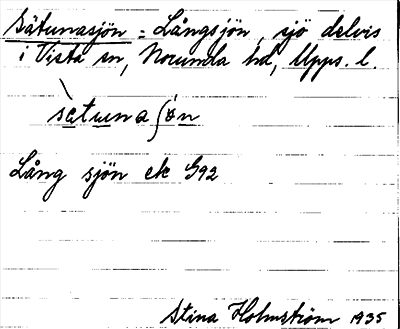 Sätunasjön = Långsjön, sjö delvis
i Viksta sn, Norunda hd, Upps. l.
sètunaʃön
Lång sjön ek G92
Stina Holmström 1935